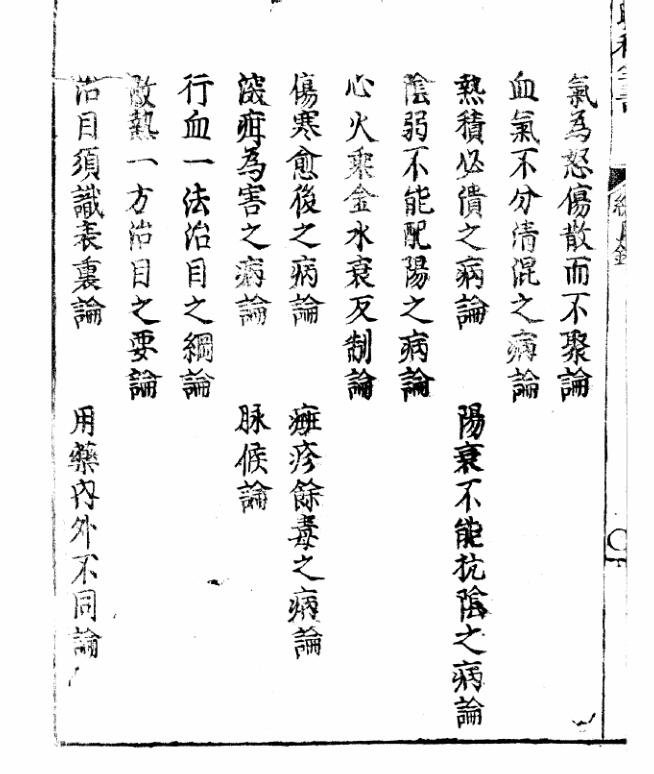 氣為怒傷散而不聚論
血氣不分清混之病論
熱積必潰之病論 陽衰不能抗陰之病論
陰弱不能配陽之病論
心火乘金水衰反制論
傷寒愈後之病論 癍疹餘毒之病論
深疳為害之病論 脉候論
行血一法治目之綱論
散熱一方治目之要論
治目須識表裏論 用藥內外不同論